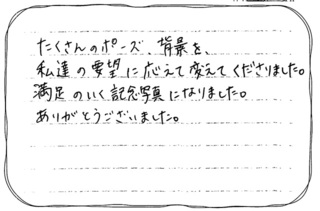 たくさんのポーズ、背景を、
私達の要望に応えて変えてくださりました。
満足のいく記念写真になりました。
ありがとうございました。